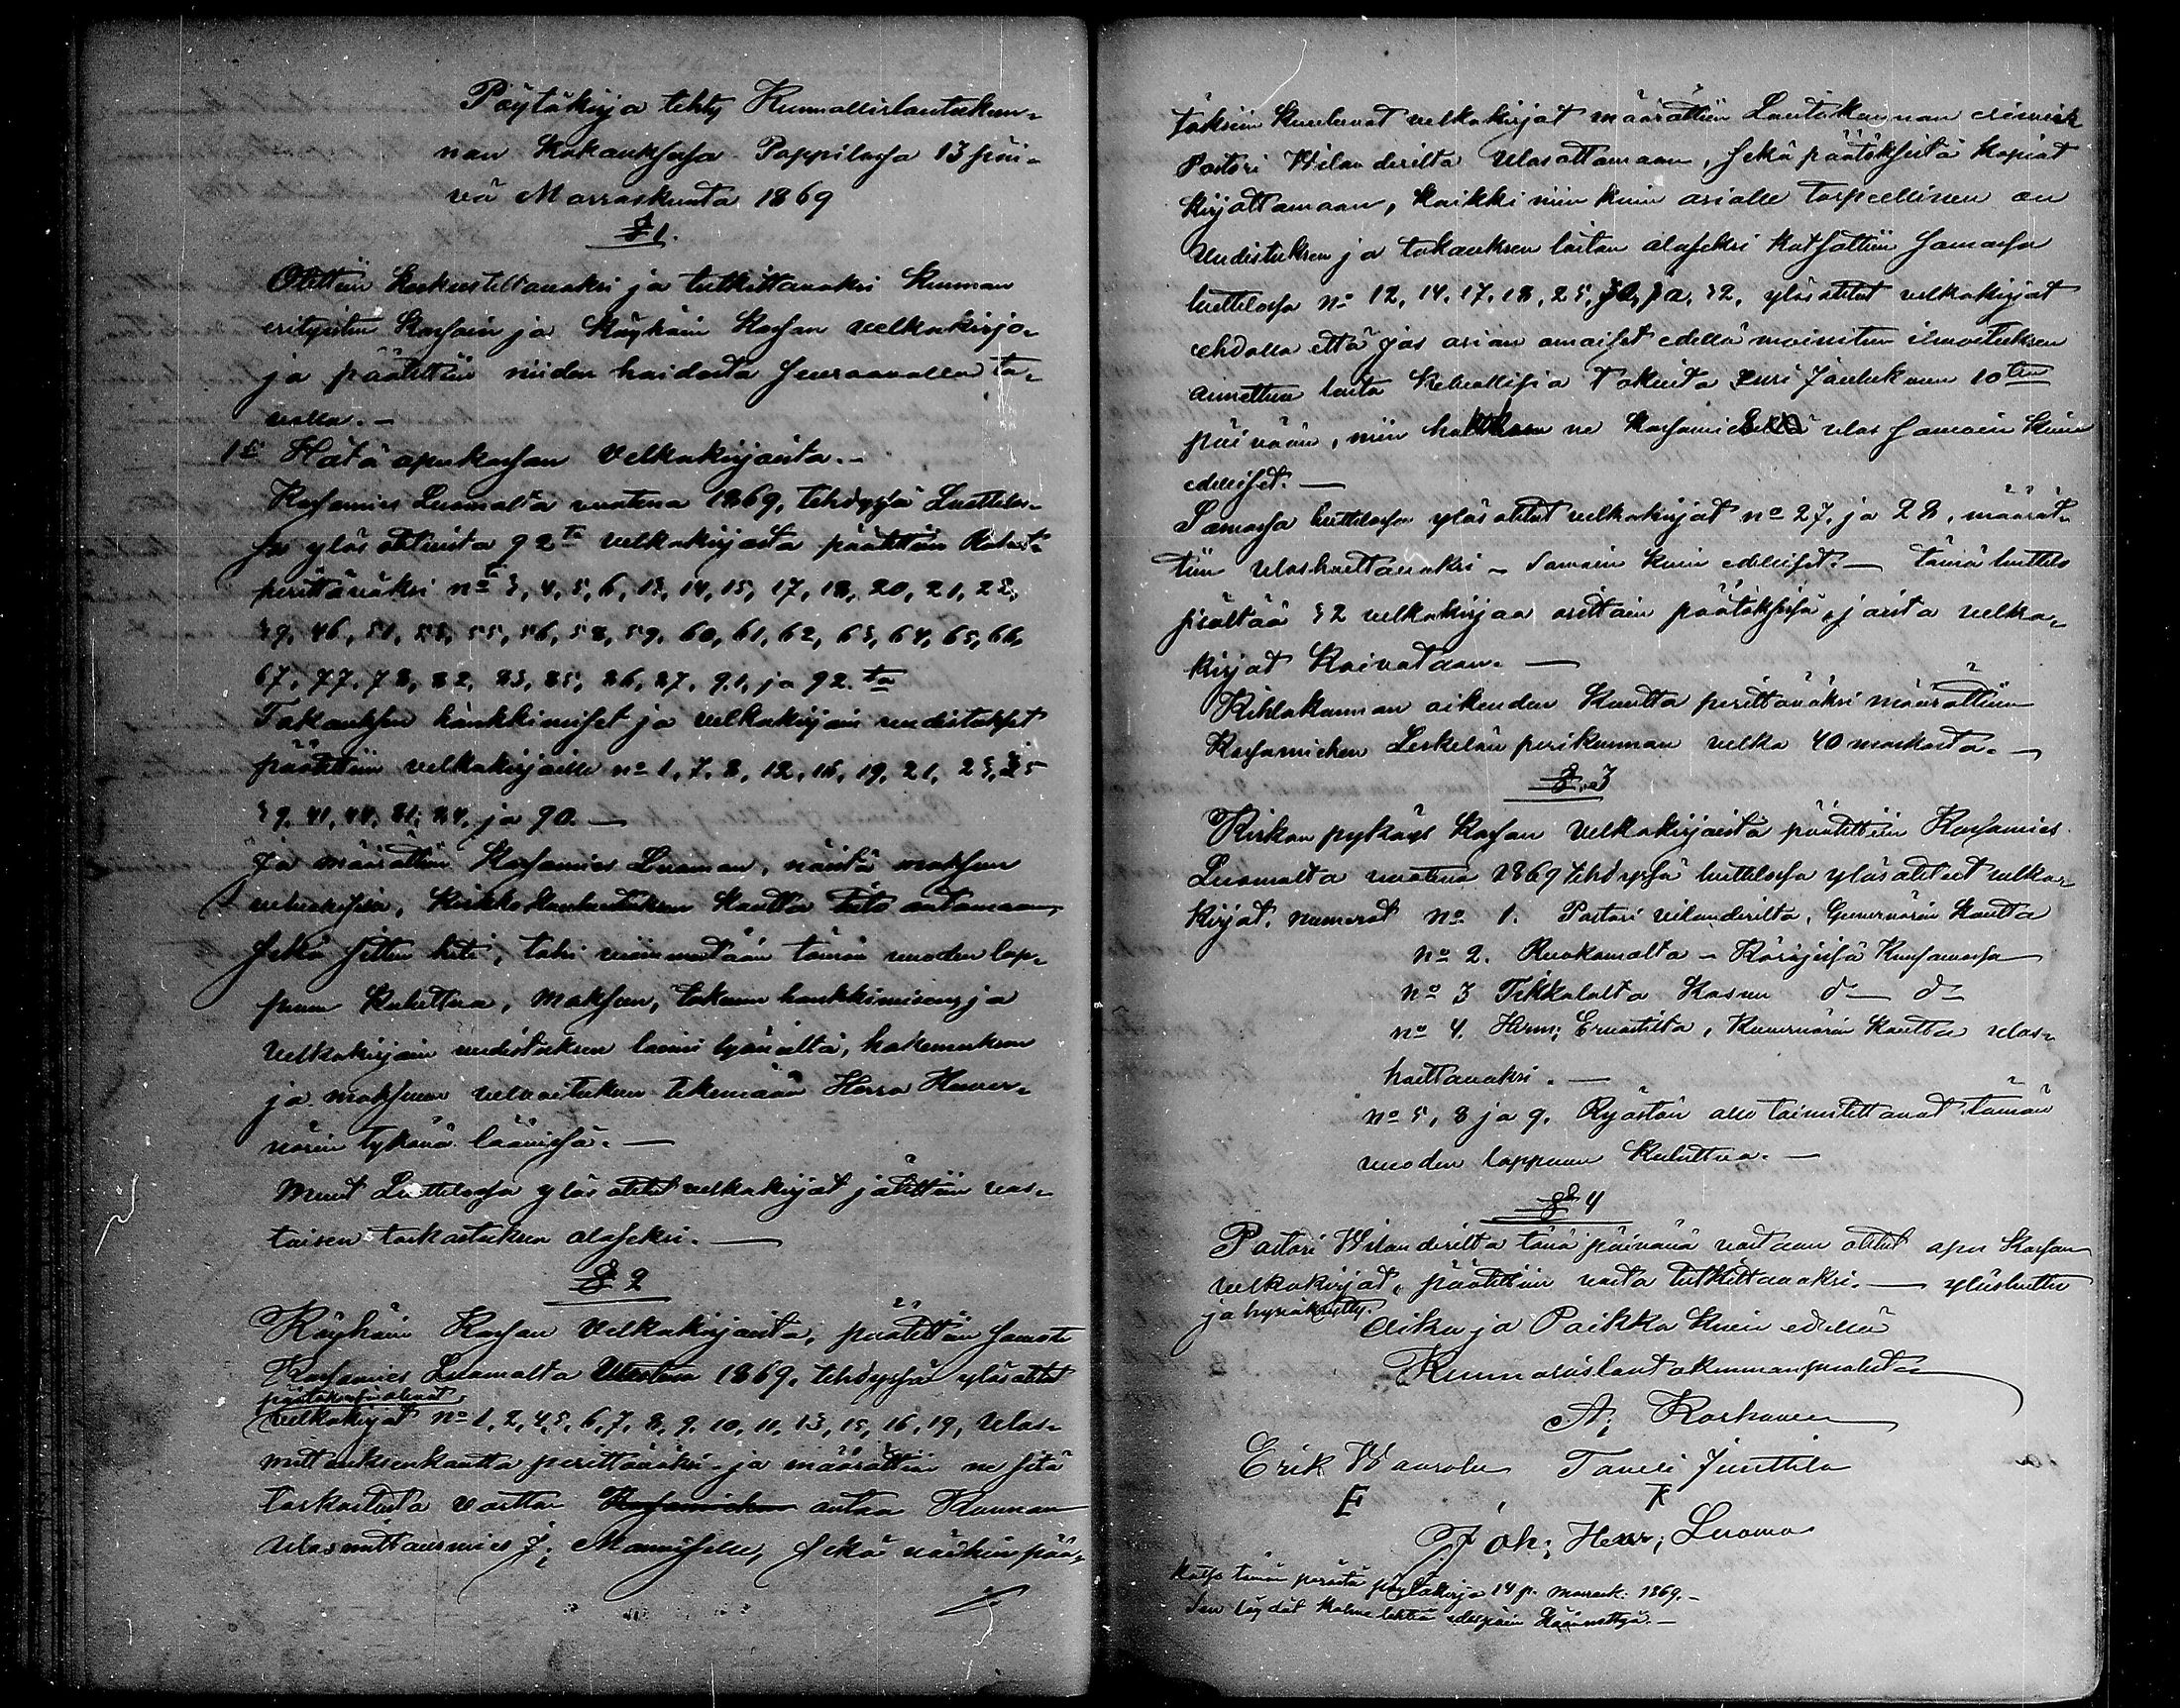 Pöytäkirja tehty Kunnallislautakun-
nan Kokouksessa Pappilassa 13 päi-
vä Marraskuuta 1869
§ 1.
Otettiin Keskusteltavaksi ja tutkittavaksi Kunnan
erityisten Kassain ja Köyhäin Kassan velkakirjo-
ja päätettiin niiden hoidosta seuraavalla ta-
valla. -
1o Hätäapukassan Velkakirjaista. -
Kassamies Luomalta vuotena 1869, tehdyssä Luettelos-
sa ylös otetuista 92ta velkakirjasta päätettiin
perittäväksi no 3, 4, 5, 6, 13, 14, 15, 17, 18, 20, 21, 22,
39, 46, 51, 53, 55, 56, 58, 59, 60, 61, 62, 63, 64, 65, 66,
67, 77, 78, 82, 83, 85, 86, 87, 91, ja 92. ta
Takauksen hankkimiset ja velkakirjain uudistukset
päätettiin velkakirjaille no 1, 7, 8, 12, 16, 19, 21, 25,
39, 41, 44, 81, 84, ja 90. -
Ja määrättiin Kassamies Luoman, näistä maksun
velvollisia, Kirkko Kuulutuksen Kautta tieto antamaan,
sekä sitten heti, tahi viimmestään tämän vuoden lop-
puun Kuluttua, Maksun, takuun hankkimisen ja
Velkakirjain uudistuksen laimin lyöviltä, hakemuksen
ja maksuun velvoituksen tekemään Herra Kuver-
nörin tykönä läänissä. -
Muut Luettelossa ylös otetut velkakirjat jätettiin vas-
taisen tarkastuksen alaseksi. -
§ 2
Köyhäin Kassan Velkakirjaista, päätettiin samate
Kassamies Luomalta Vuotena 1869. tehdyssä ylösotetut
päätöksessä olevat
velkakirjat no 1, 2, 4, 5, 6, 7, 8, 9, 10, 11, 13, 15, 16, 19, Ulos-
mittauksenkautta perittäväksi - ja määrättiin ne sitä
tarkoitusta vartten Kassamiehen antaa Kunnan
Ulosmittausmies J; Manniselle, sekä näihin pää-
töksiin Kuuluvat velkakirjat määrättiin Lautakunnan esimies
Pastori Wilanderilta Ulosottamaan, sekä päätöksistä Kopiat
Kirjottamaan, Kaikki niin kuin asialle tarpeellinen on
Uudistuksen ja takauksen laiton alaseksi Katsottiin samassa
luettelossa no 12, 14, 17, 18, 25, 32, ylös otetut velkakirjat
ehdolla että jos asian omaiset edellä mainitun ilmoituksen
annettua tästä Kelvollisia takuita Ensi Jouluk uun 10ten
päivään, niin ne ulos samoin Kuin
edelliset. -
Samassa luettelossa ylös otetut velkakirjat no 27, ja 28, määrät-
tiin Uloshaettavaksi - Samoin Kuin edelliset. - Tämä luettelo
sisältää 32 velkakirjaa osittain päätöksissä, joista velka-
kirjat Kaivataan. -
Kihlakunnan oikeuden Kautta perittäväksi määrättiin
Kassamiehen Leskelän perikunnan velka 40 markasta. -
§. 3
Kirkon pykäys Kassan Velkakirjaista päätettiin Kassamies
Luomalta vuotena 1869 tehdyssä luettelossa ylösotetut velka-
kirjat. numerot no 1. Pastori vilanderilta, Guvernörin Kautta
no 2. Ruokamolta - Käräjissä Kuusamossa
no 3 Tikkalalta Kasurn d- d-
no 4. Herra; Ervastilta, Kuvernörin Kautta ulos-
haettavaksi. -
no 5, 8 ja 9. Ryöstön alle toimitettavat tämän
vuoden loppuun Kuluttua. -
§ 4
Pastori Wilanderilta tänä päivänä vastaan otetut apu Kassan
velkakirjat, päätettiin vasta tutkittavaksi. - ylösluettu
ja hyväksytty.
Aika ja Paikka Kuin edellä
Kunnallislautakunnan puolesta
A; Korhonen
Erik Waarala Taneli Junttila
E T
Joh; Henr; Luoma
Katso tämän perästä pöytäkirja 14 p. marrask: 1869. -
Sen löydät Kolme lehteä edespäin Käännettyä. -